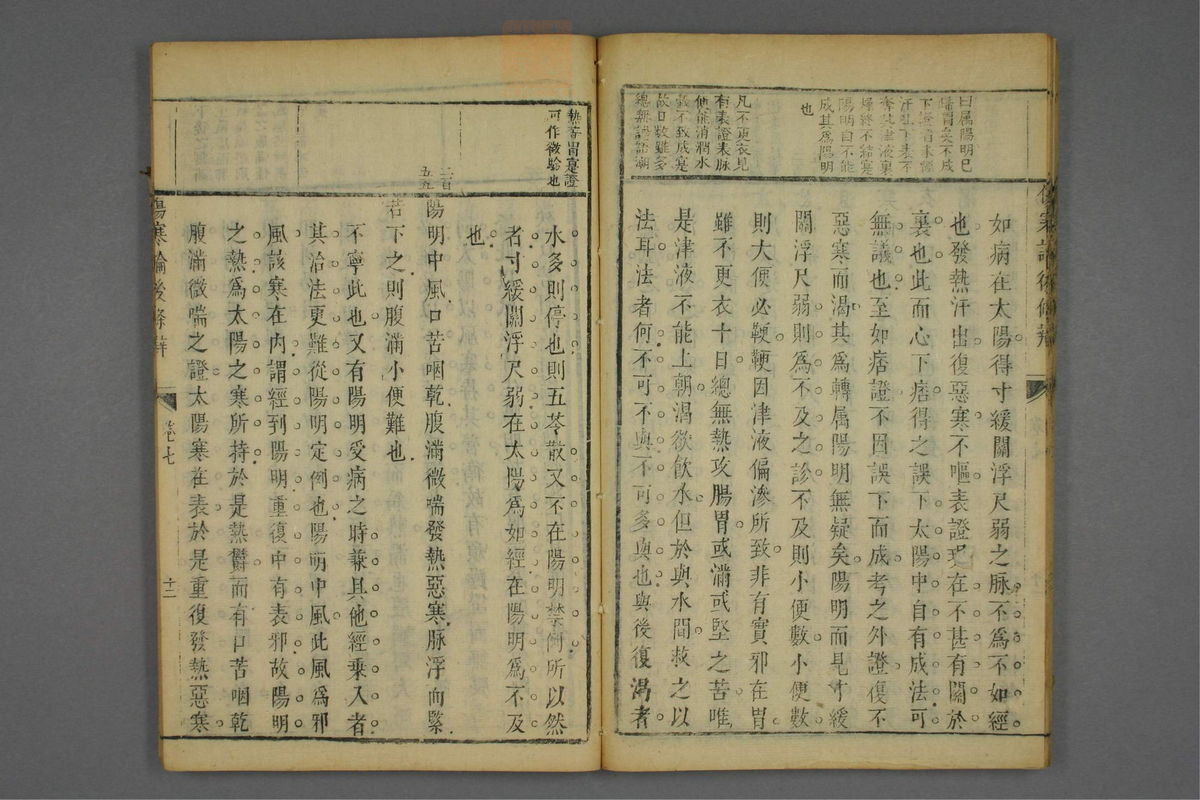 曰属陽明已
歸胃矣不成
下證者未係
汗吐下表不
奪其津液裏
歸終不結寔
陽明自不能
成其爲陽明
也
凡不更衣見
有表證表脉
使能消潤水
穀不致成寔
故日數雖多
總無讝語潮
如病在太陽得寸緩關浮尺弱之脉不爲不如經
也發熱汗出復惡寒不嘔表證現在不甚有關於
裏也此而心下痞得之誤下太陽中自有成法可
無議也至如痞證不因誤下而成考之外證復不
惡寒而渴其爲轉属陽明無疑矣陽明而見寸緩
關浮尺弱則爲不及之診不及則小便數小便數
則大便必鞕鞕因津液偏滲所致非有實邪在胃
雖不更衣十日總無熱攻腸胃或滿或堅之苦唯
是津液不能上朝渴欲飲水但於與水間救之以
法耳法者何不可不與不可多與也與後復渴者
熱等胃寔證
可作微驗也
水多則停也則五苓散又不在陽明禁例所以然
者寸緩關浮尺弱在太陽爲如經在陽明爲不及
也
二百
五五
陽明中風口苦咽乾腹滿微喘發熱惡寒脉浮而緊
若下之則腹滿小便難也
不寧此也又有陽明受病之時兼其他經乗入者
其治法更難從陽明定例也陽明中風此風爲邪
風該寒在內謂經到陽明重復中有表邪故陽明
之熱爲太陽之寒所持於是熱鬱而有口苦咽乾
腹滿微喘之證太陽寒在表於是重復發熱惡寒
傷寒論後條辨
卷七
十二